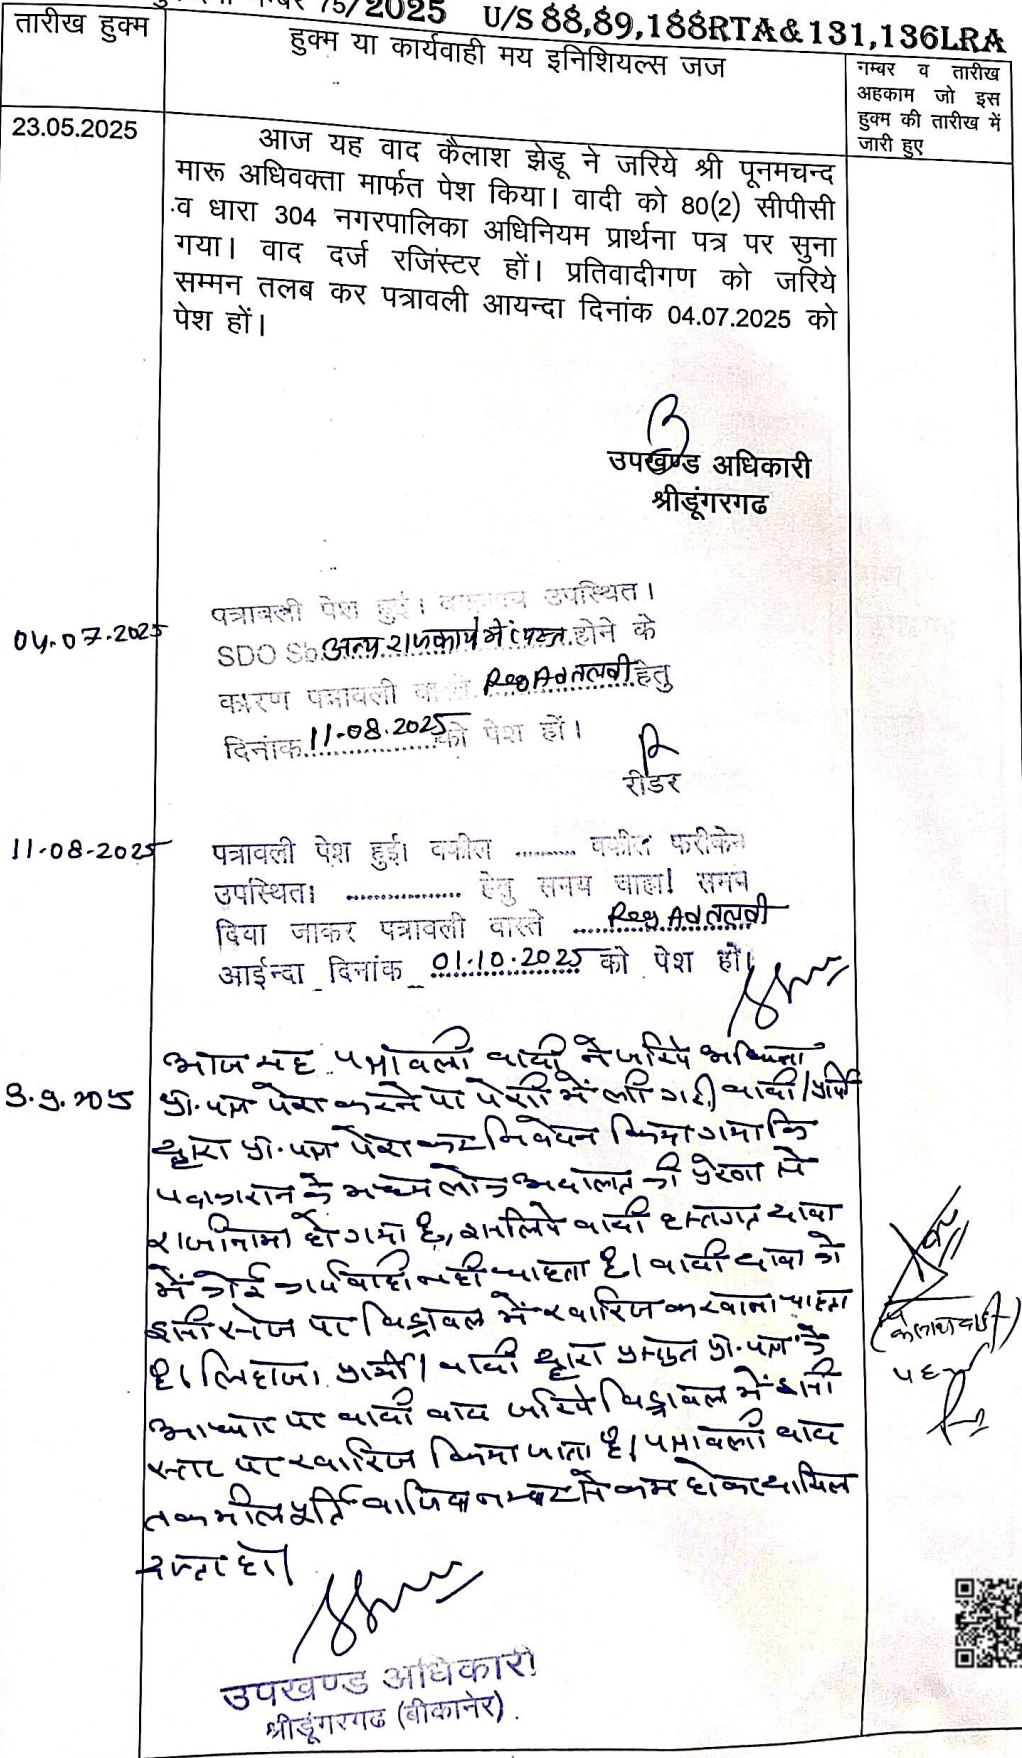 नम्बर 75/2025 U/S 88,89,188RTA&131,136LRA
तारीख हुक्म
हुक्म या कार्यवाही मय इनिशियल्स जज
नम्बर व तारीख
अहकाम जो इस
हुक्म की तारीख में
जारी हुए
23.05.2025
आज यह वाद कैलाश झेडू ने जरिये श्री पूनमचन्द
मारू अधिवक्ता मार्फत पेश किया। वादी को 80(2) सीपीसी
व धारा 304 नगरपालिका अधिनियम प्रार्थना पत्र पर सुना
गया। वाद दर्ज रजिस्टर हों। प्रतिवादीगण को जरिये
सम्मन तलब कर पत्रावली आयन्दा दिनांक 04.07.2025 को
पेश हों।
उपखण्ड अधिकारी
श्रीडूंगरगढ
04.07.2025
पत्रावली पेश हुई। उपस्थित।
SDO Sb. अन्य राजकार्य में व्यस्त होने के
कारण पत्रावली वास्ते Reg Ad तलबी हेतु
दिनांक 11-08.2025 को पेश हों।
रीडर
11-08-2025
पत्रावली पेश हुई। वकील .......... वकील फरीकेन
उपस्थित। .................. हेतु समय चाहा। समय
दिया जाकर पत्रावली वास्ते Reg Ad तलबी
आईन्दा दिनांक 01.10.2025 को पेश हों।
3.9.2025
आज यह पत्रावली वादी ने जरिये अधिवक्ता
प्रा.पत्र पेश करने पर पेशी में ली गई। वादी/प्रार्थी
द्वारा प्रा.पत्र पेश कर निवेदन किया गया कि
पक्षकारान के मध्य लोक अदालत की प्रेरणा से
राजीनामा हो गया है, इसलिये वादी हस्तगत दावा
में कोई कार्यवाही नहीं चाहता है। वादी दावा को
इसी स्टेज पर विड्रावल में खारिज करवाना चाहता
है। लिहाजा प्रार्थी/वादी द्वारा प्रस्तुत प्रा.पत्र के
आधार पर वादी वाद जरिये विड्रावल में इसी
स्तर पर खारिज किया जाता है। पत्रावली बाद
तकमील पूर्ति वाजिब नम्बर से कम होकर दाखिल
दफ्तर हो।
उपखण्ड अधिकारी
श्रीडूंगरगढ (बीकानेर)